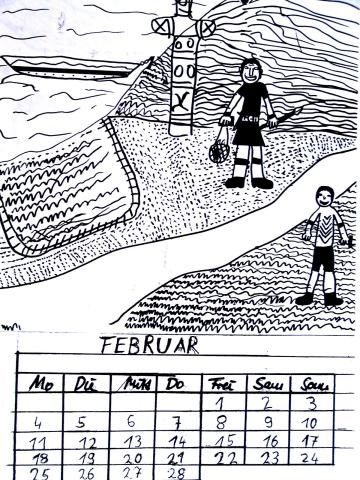 FEBRUAR
Mo Di Mitt Do Frei Sam Sonn
1 2 3
4 5 6 7 8 9 10
11 12 13 14 15 16 17
18 19 20 21 22 23 24
25 26 27 28